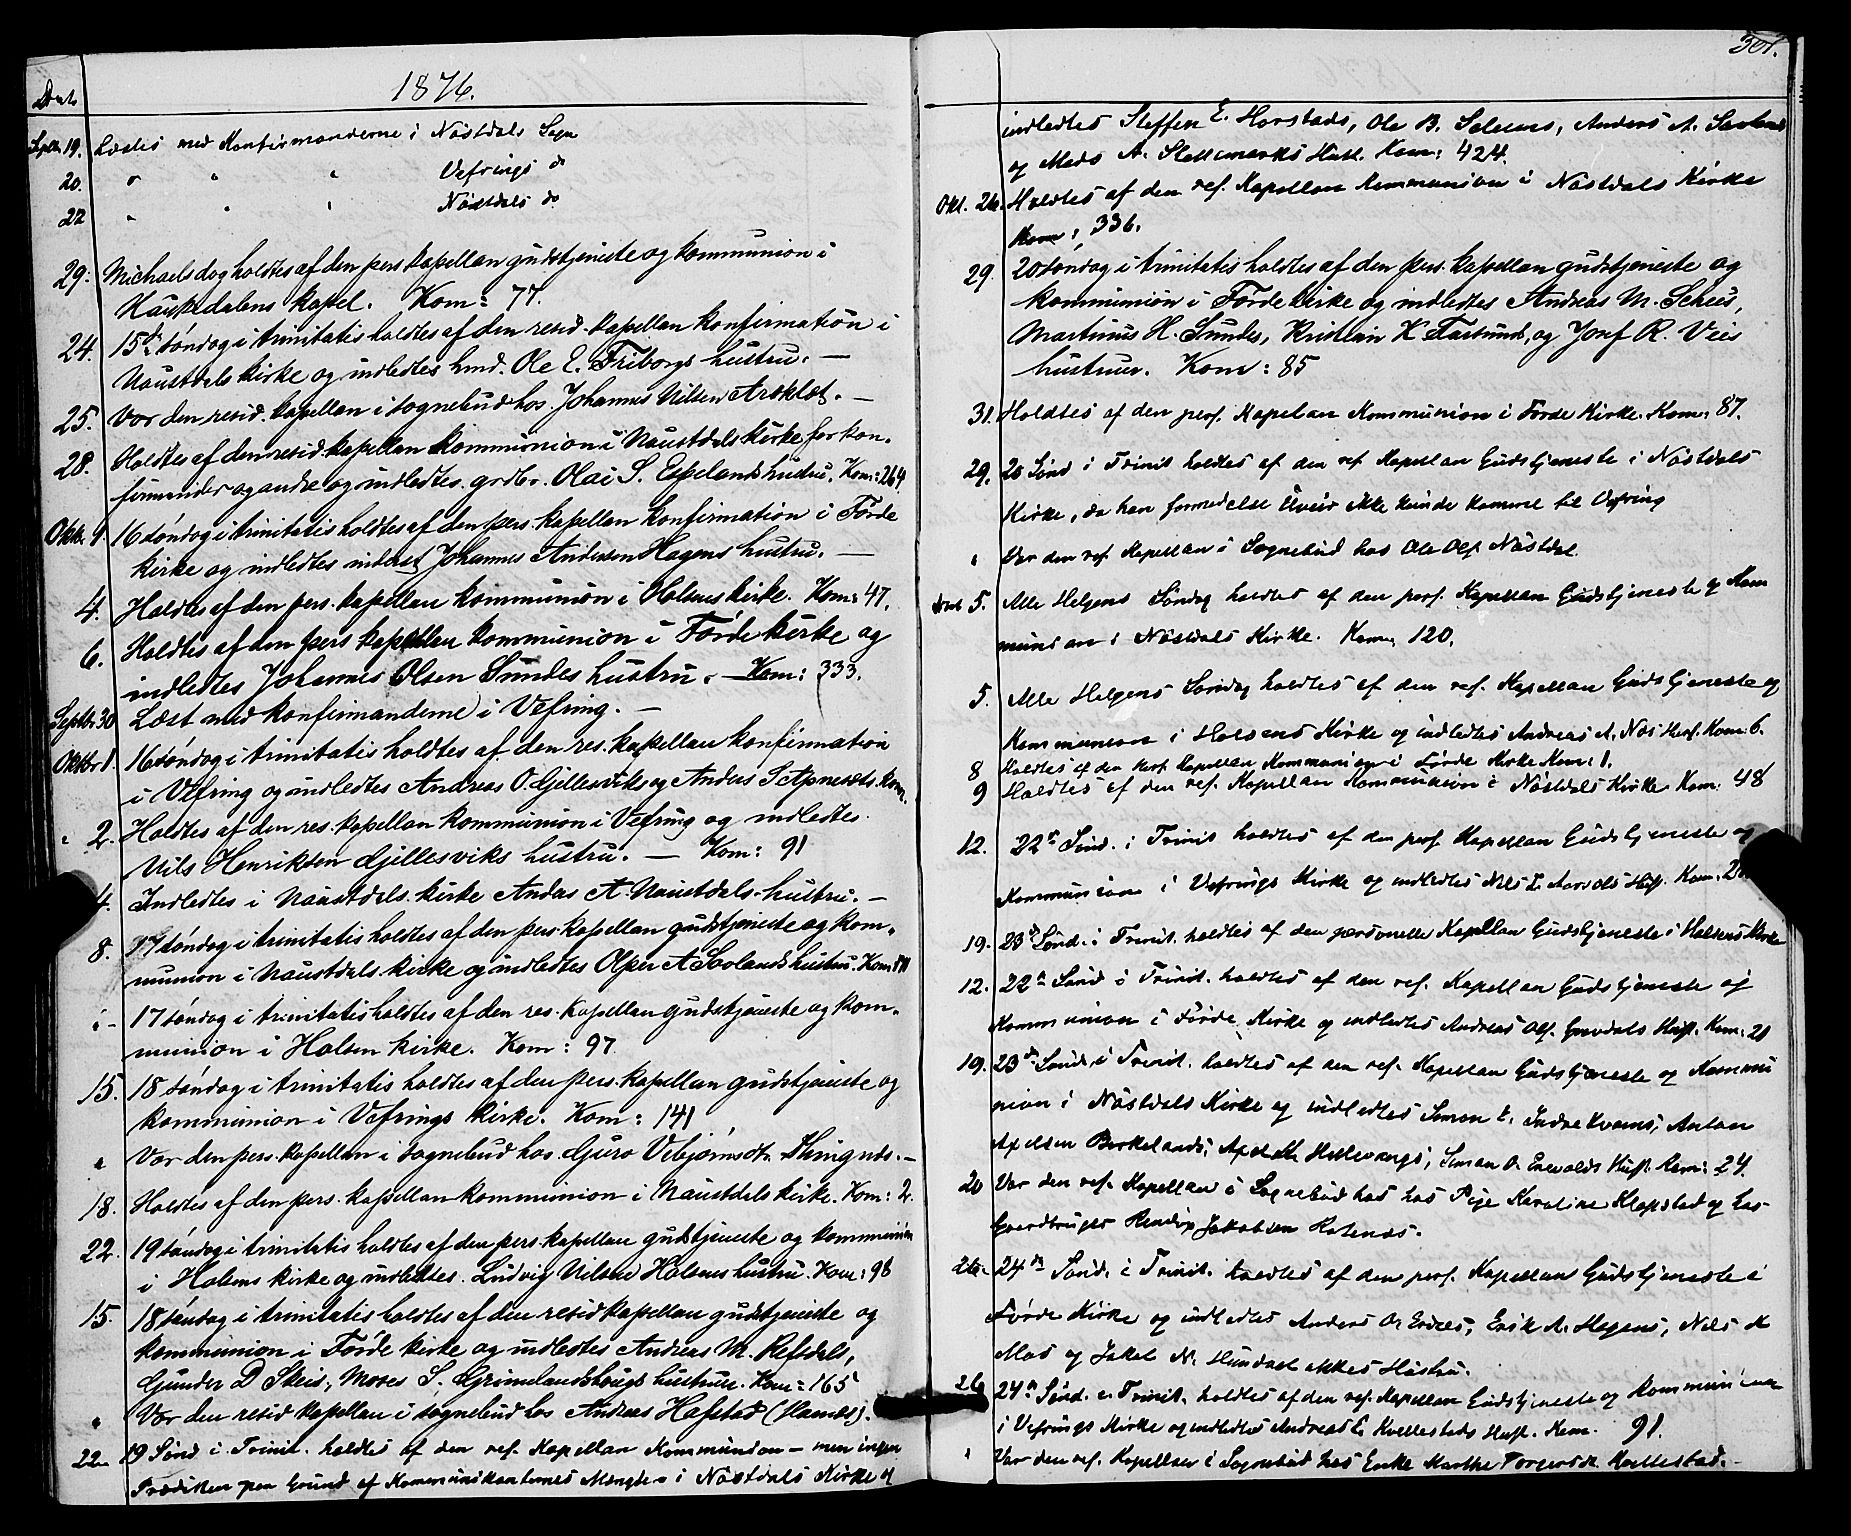 Dato
1876.
Septbr 19. Læstes med Konfirmanderne i Nøstdals Sogn
20. " " " Vefrings do
22 " " " Nøstdals do
29. Michaelsdag holdtes af den pers kapellan gudstjeneste og kommunion i
Haukedalens kapel. Kom: 77.
24. 15de søndag i trinitatis holdtes af den resid. kapellan konfirmation i
Naustdals kirke og indledtes hmd. Ole E. Friborgs hustru. —
25. Var den resid. kapellan i sognebud hos Johannes Nilsen Aroklet. —
28. Holdtes af den resid. kapellan kommunion i Naustdals kirke for kon-
firmander og andre og indledtes grdbr. Olai S. Espelands hustru. Kom: 264.
Oktb. 1. 16 søndag i trinitatis holdtes af den pers. kapellan konfirmation i Førde
kirke og indledtes inderst Johannes Andersen Hagens hustru. —
4. Holdtes af den pers. kapellan kommunion i Holsens kirke. Kom: 47.
6. Holdtes af den pers kapellan kommunion i Førde kirke og
indledtes Johannes Olsen Sundes hustru. — Kom: 333.
Septbr 30 Læst med konfirmanderne i Vefring. —
Oktbr 1. 16 søndag i trinitatis holdtes af den res. kapellan konfirmation
i Vefring og indledtes Andreas O. Gjellesviks og Anders S. koner.
" 2. Holdtes af den res. kapellan kommunion i Vefring og indledtes
Nils Henriksen Gjellesviks hustru. — Kom: 91
4. Indledtes i Naustdals kirke Andas A. Naustdals hustru. —
8. 17 søndag i trinitatis holdtes af den pers. kapellan gudstjeneste og kom-
munion i Naustdals kirke og indledtes A Savlands hustru. Kom:
" - 17 søndag i trinitatis holdtes af den res. kapellan gudstjeneste og kom-
munion i Holsen kirke. Kom: 97.
15. 18 søndag i trinitatis holdtes af den pers. kapellan gudstjeneste og
kommunion i Vefrings kirke. Kom: 141
" Var den pers. kapellan i sognebud hos Guro Vebjørnsdtr. —
18. Holdtes af den pers. kapellan kommunion i Naustdals kirke. Kom: 2.
22. 19 søndag i trinitatis holdtes af den pers. kapellan gudstjeneste og kommunion
i Holsens kirke og indledtes Ludvig Nilsen Holsens hustru. Kom: 98
15. 18 søndag i trinitatis holdtes af den resid kapellan gudstjeneste og
kommunion i Førde kirke og indledtes Andreas M. Refsdals,
Gunder D Skeis, Moses S. Grimelandshougs hustruer. Kom: 165
" Var den resid kapellan i sognebud hos Andreas Hafstad (Hamdøl).
22 19 Sønd i Trinit. holdtes af den res. Kapellan Kommunion — men ingen
Prædiken paa Grund af Kommunikanternes Mængde — i Nøstdals Kirke og
307.
indledtes Steffen E. Horstads, Ole B. Anders A. Savlands
og Mads A. Hust. Kom: 424.
Okt. 26. Holdtes af den res. Kapellan Kommunion i Nøstdals Kirke
Kom: 336.
29. 20 søndag i trinitatis holdtes af den pers. kapellan gudstjeneste og
kommunion i Førde kirke og indledtes Andreas M. Scheis,
Martinus H. Sundes, Kristian K. Farsunds, og Josef R. Veis
hustruer. Kom: 85
31. Holdtes af den pers. Kapellan Kommunion i Førde Kirke. Kom: 87.
29. 20 Sønd i Trinit holdtes af den res Kapellan Gudstjeneste i Nøstdals
Kirke, da han formedelst Uveir ikke kunde komme til Vefring
" Var den res. Kapellan i Sognebud hos Ole Ols. Nøstdal.
Novb 5. Alle Helgens Søndag holdtes af den pers. Kapellan Gudstjeneste og Kom
munion i Nøstdals Kirke. Kom. 120.
5. Alle Helgens Søndag holdtes af den res. Kapellan Gudstjeneste og
Kommunion i Holsens Kirke og indledtes Andreas A. Nøs Hust. Kom: 6.
8 Holdtes af den pers. Kapellan Kommunion i Førde Kirke Kom: 1.
9 Holdtes af den res. Kapellan Kommunion i Nøstdals Kirke. Kom: 48
12. 22de Sønd. i Trinit holdtes af den pers. Kapellan Gudstjeneste og
Kommunion i Vefrings Kirke og indledtes Nils Hust. Kom.
19. 23de Sønd. i Trinit. holdtes af den personelle Kapellan Gudstjeneste i Holsens Kirke
12. 22de Sønd i Trinit. holdtes af den res. Kapellan Gudstjeneste og
Kommunion i Førde Kirke og indledtes Andreas Ols. Hust. Kom: 20
19. 23de Sønd i Trinit. holdtes af den res. Kapellan Gudstjeneste og Kommu
nion i Nøstdals Kirke og indledtes Simon E. Indrekvams, Anton
Axelsen Birkelands, Hellevangs, Simon O. Hust. Kom: 24.
20 Var den res. Kapellan i Sognebud hos hos Pige Karoline Klopstad og hos
Gaardbruger Rendip Jakobsen
26. 24de Sønd. i Trinit. holdtes af den pers. Kapellan Gudstjeneste i
Førde Kirke og indledtes Anders O. Erik A. Hagens, Nils K
Mos og Jakob N. Hustru.
26 24de Sønd. i Trinit. holdtes af den res. Kapellan Gudstjeneste og Kommunion
i Vefrings Kirke og indledtes Andreas E Kvellestads Hust. Kom. 91.
" Var den res. Kapellan i Sognebud hos Enke Marthe Torgersdt. Kvellestad. —